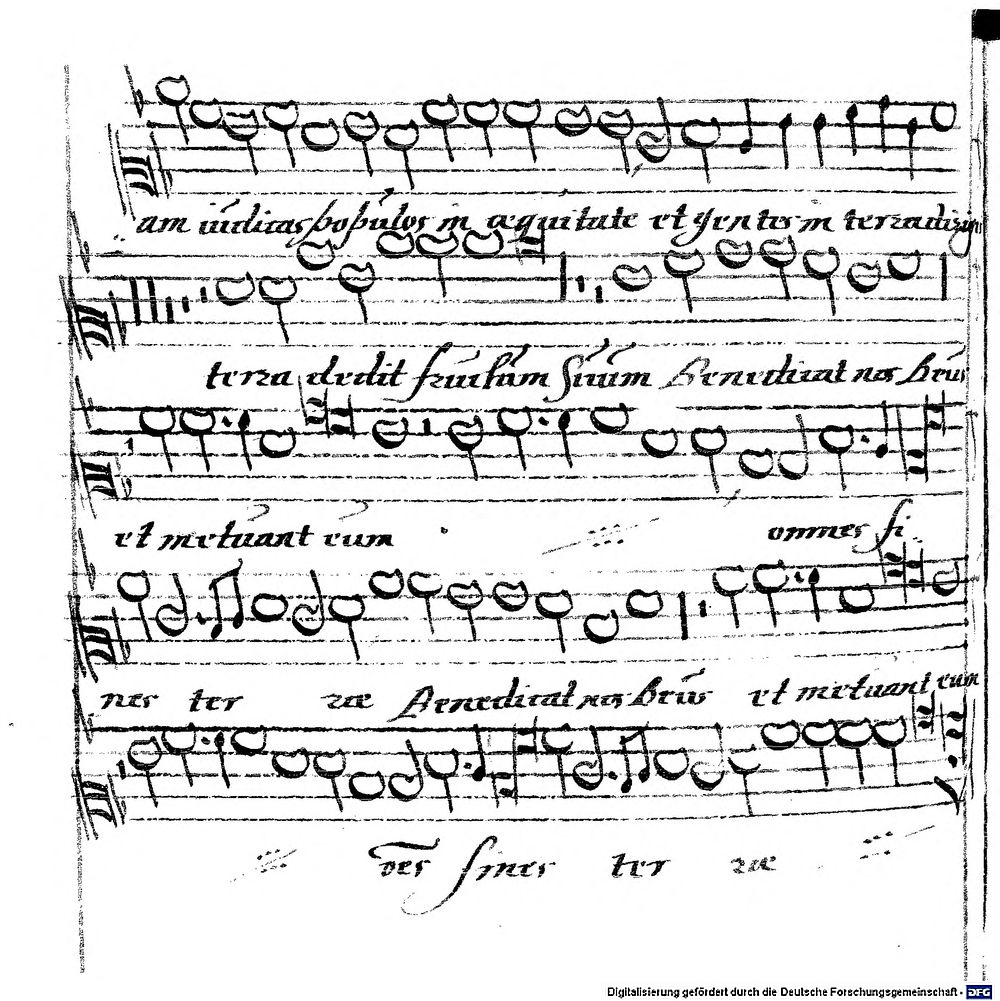 am iudicas populos in æquitate et gentes in terra dirigi
terra dedit fructum suum Benedicat nos Deus
et metuant eum omnes fi
nes ter ræ Benedicat nos Deus et metuant eum
oēs fines ter ræ
Digitalisierung gefördert durch die Deutsche Forschungsgemeinschaft - DFG